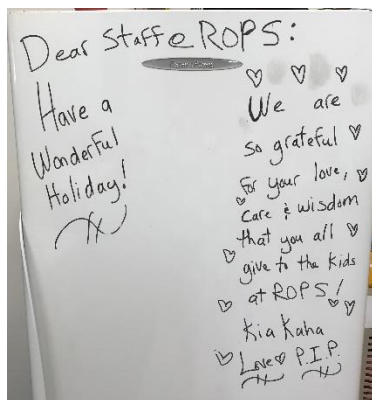 Dear Staff e ROPS:
Have a
Wonderful
Holiday!
We are
so grateful
for your love,
care & wisdom
that you all
give to the kids
at ROPS!
Kia Kaha
Love P.I.P.